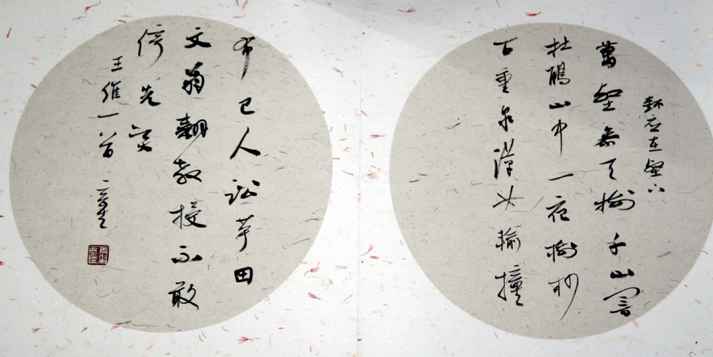 樹應在壑下
萬壑參天樹千山響
杜鵑山中一夜樹杪
百重泉漢女輸橦
布巴人訟芋田
文翁翻教授不敢
倚先賢
王維一首